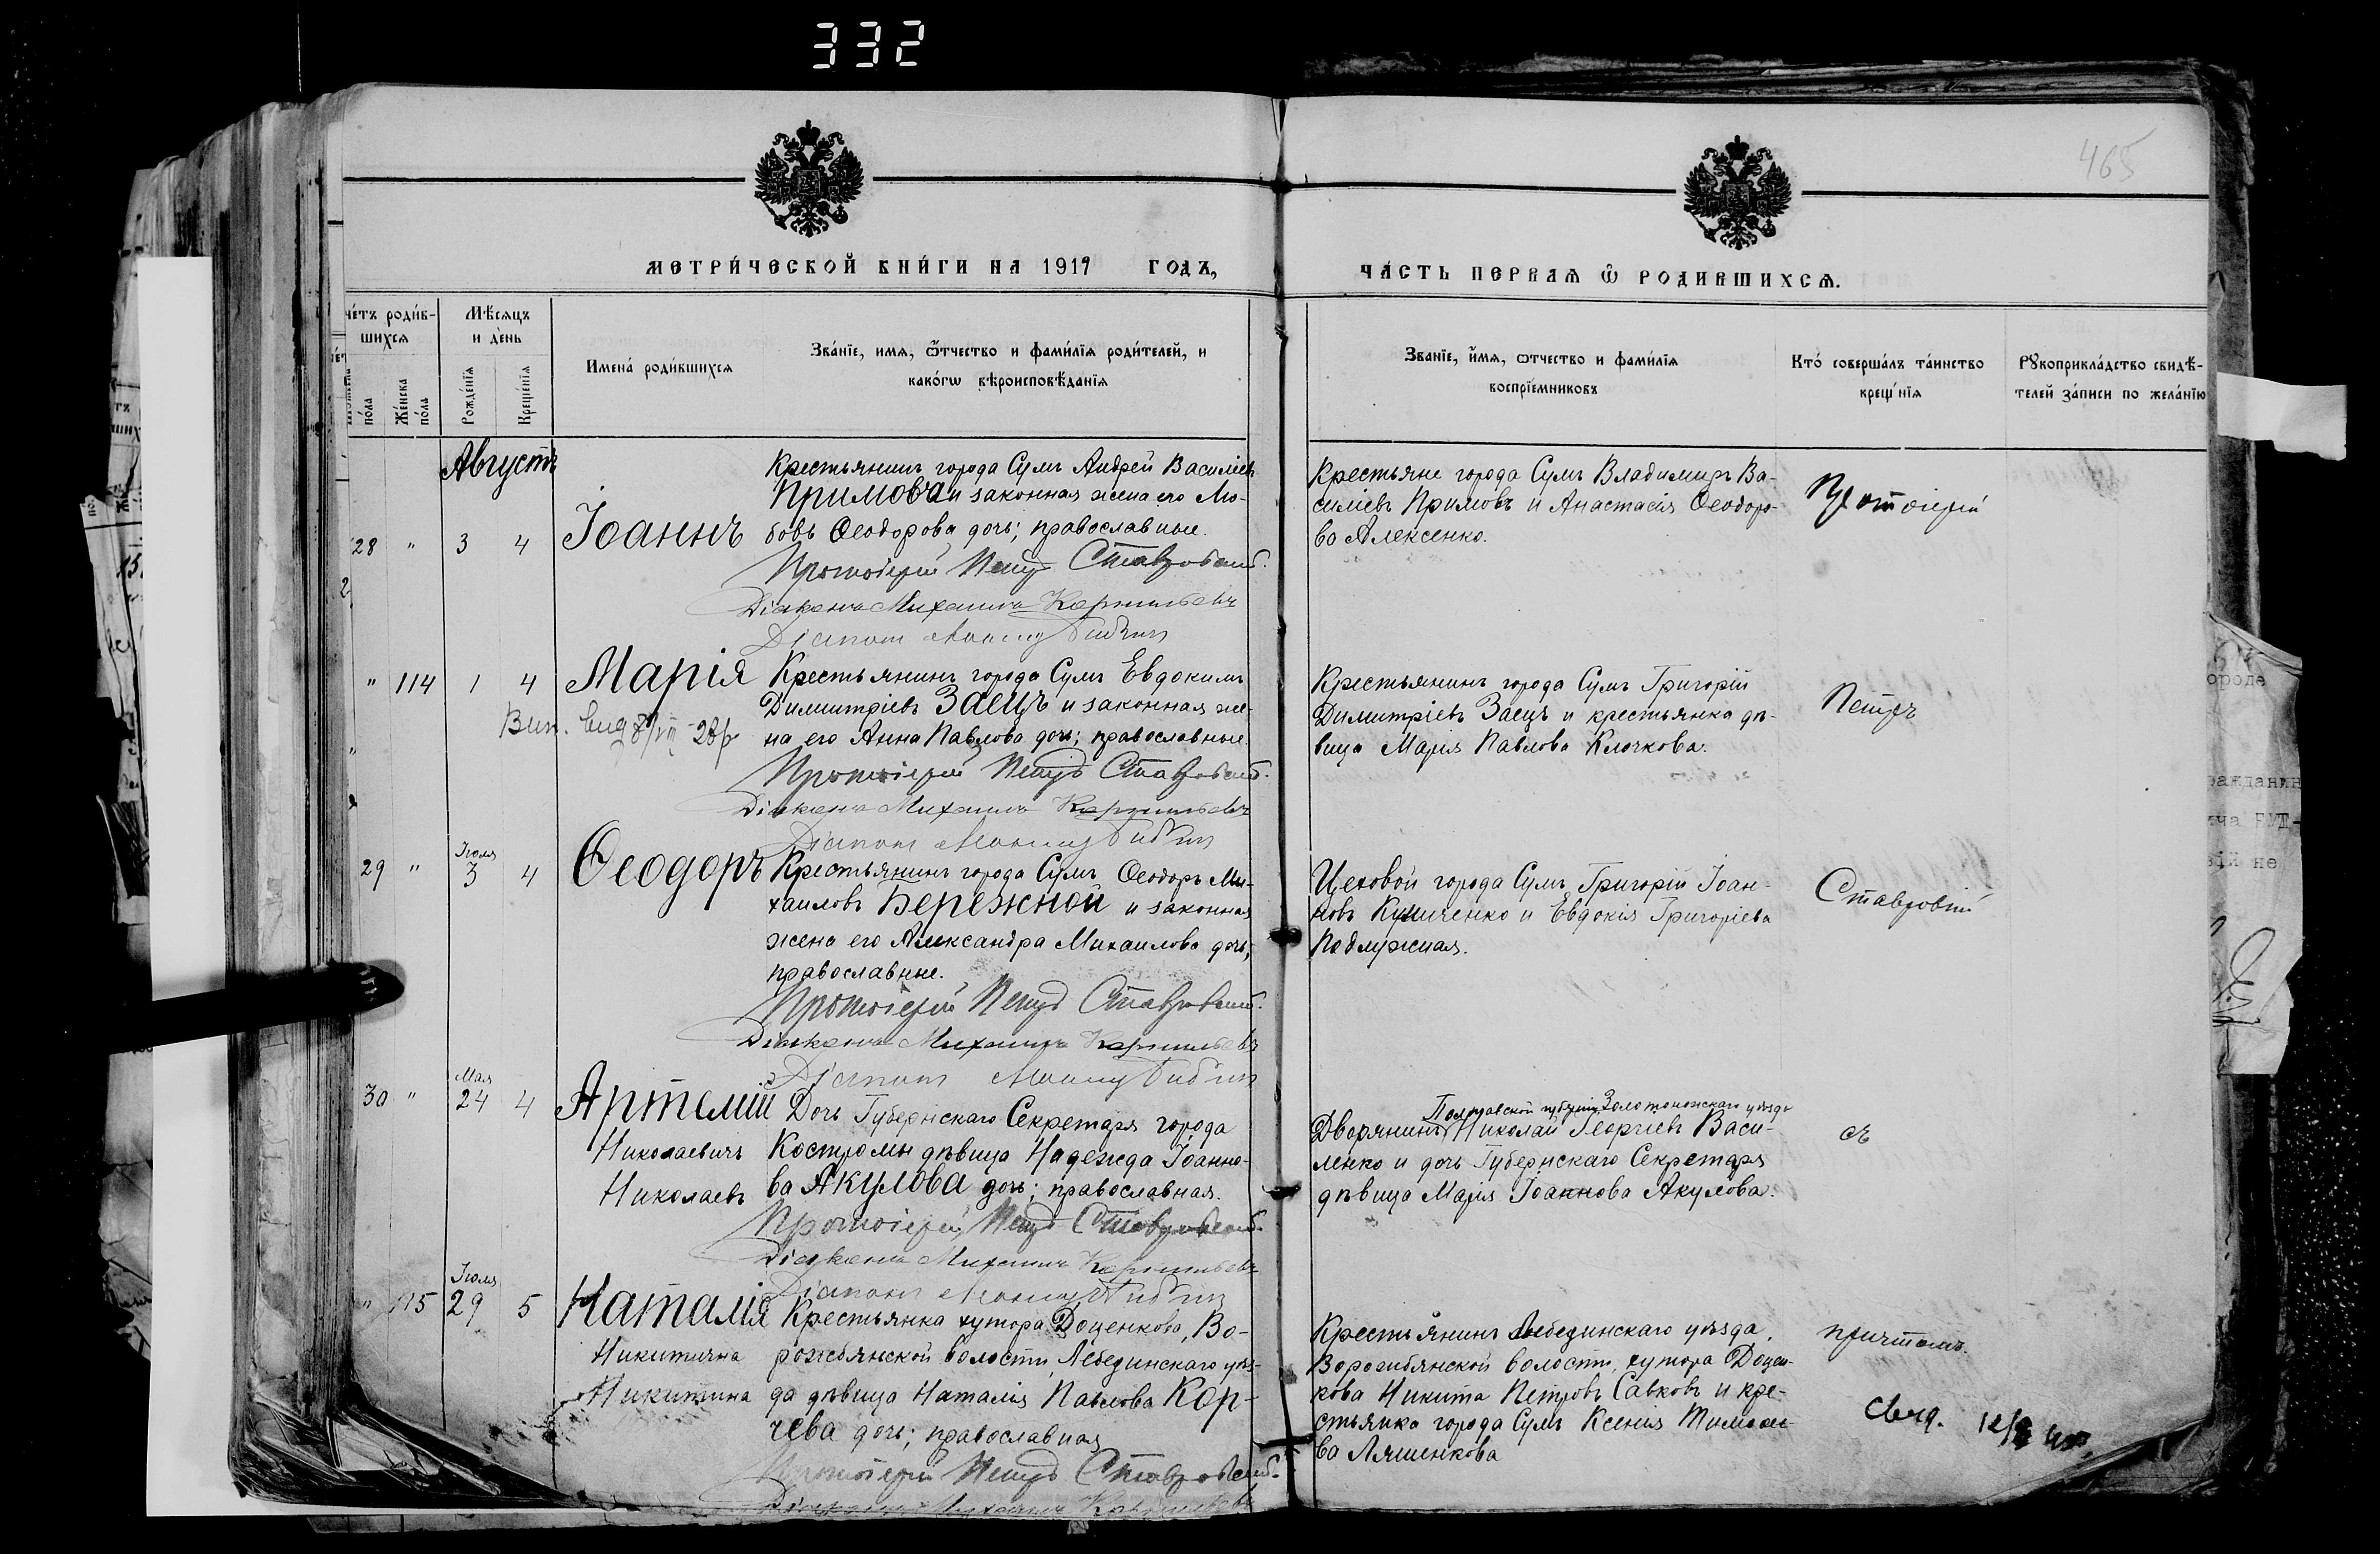 332
465
МЕТРИ́ЧЕСКОЙ КНИ́ГИ НА 1917 ГОДЪ,
ЧА́СТЬ ПЕРВАѦ Ѡ҆ РОДИВШИХСѦ.
че́тъ роди́в-
шихсѧ
Мѣ́сѧцъ
и де́нь
по́ла
Же́нска
по́ла
Рожде́нїѧ
Креще́нїѧ
Имена́ роди́вшихсѧ
Зва́нїе, имѧ, ѻ҆́тчество и фами́лїѧ роди́телей, и
како́гѡ вѣроисповѣ́данїѧ
Званїе, и҆́мѧ, ѻтчество и фами́лїѧ
воспрїе́мниковъ
Кто́ соверша́лъ та́инство
креще́нїѧ
Рꙋкоприкла́дство свидѣ́-
телей за́писи по жела́нїю
Августъ
28 " 3 4 Іоаннъ
Крестьянинъ города Сумъ Андрей Василіевъ
Примовъ и законная жена его Лю-
бовь Ѳеодорова дочь; православные.
Протоіерей Петръ Ставровскій.
Діаконъ Михаилъ Корнильевъ
Крестьяне города Сумъ Владимиръ Ва-
силіевъ Примовъ и Анастасія Ѳеодоро-
ва Алексенко.
Протоіерей
" 114 1 4 Марія
Крестьянинъ города Сумъ Евдокимъ
Димитріевъ Заецъ и законная же-
на его Анна Павлова дочь; православные.
Протоіерей Петръ Ставровскій.
Діаконъ Михаилъ Корнильевъ
Крестьянинъ города Сумъ Григорій
Димитріевъ Заецъ и крестьянка дѣ-
вица Марія Павлова Клочкова.
Петръ
29 " Іюля 3 4 Ѳеодоръ
Крестьянинъ города Сумъ Ѳеодоръ Ми-
хаиловъ Бережной и законная
жена его Александра Михаилова дочь;
православные.
Протоіерей Петръ Ставровскій.
Діаконъ Михаилъ Корнильевъ
Цеховой города Сумъ Григорій Іоан-
новъ Куниченко и Евдокія Григоріева
Подлужная.
Ставровскій
30 " Мая 24 4 Артемій
Николаевичъ
Николаевъ
Дочь Губернскаго Секретаря города
Костромы дѣвица Надежда Іоанно-
ва Акулова дочь; православная.
Протоіерей Петръ Ставровскій.
Діаконъ Михаилъ Корнильевъ
Полтавской губерніи Золотоношскаго уѣзда
Дворянинъ Николай Георгіевъ Васи-
ленко и дочь Губернскаго Секретаря
дѣвица Марія Іоаннова Акулова.
съ
" 115 Іюля 29 5 Наталія
Никитична
Никитина
Крестьянка хутора Доценкова, Во-
рожбянской волости, Лебединскаго уѣз-
да дѣвица Наталія Павлова Кор-
чева дочь; православная
Протоіерей Петръ Ставровскій.
Діаконъ Михаилъ Корнильевъ
Крестьянинъ Лебединскаго уѣзда,
Ворожбянской волости, хутора Доцен-
кова Никита Петровъ Савковъ и кре-
стьянка города Сумъ Ксенія Тимоѳее-
ва Ляшенкова
причтомъ.